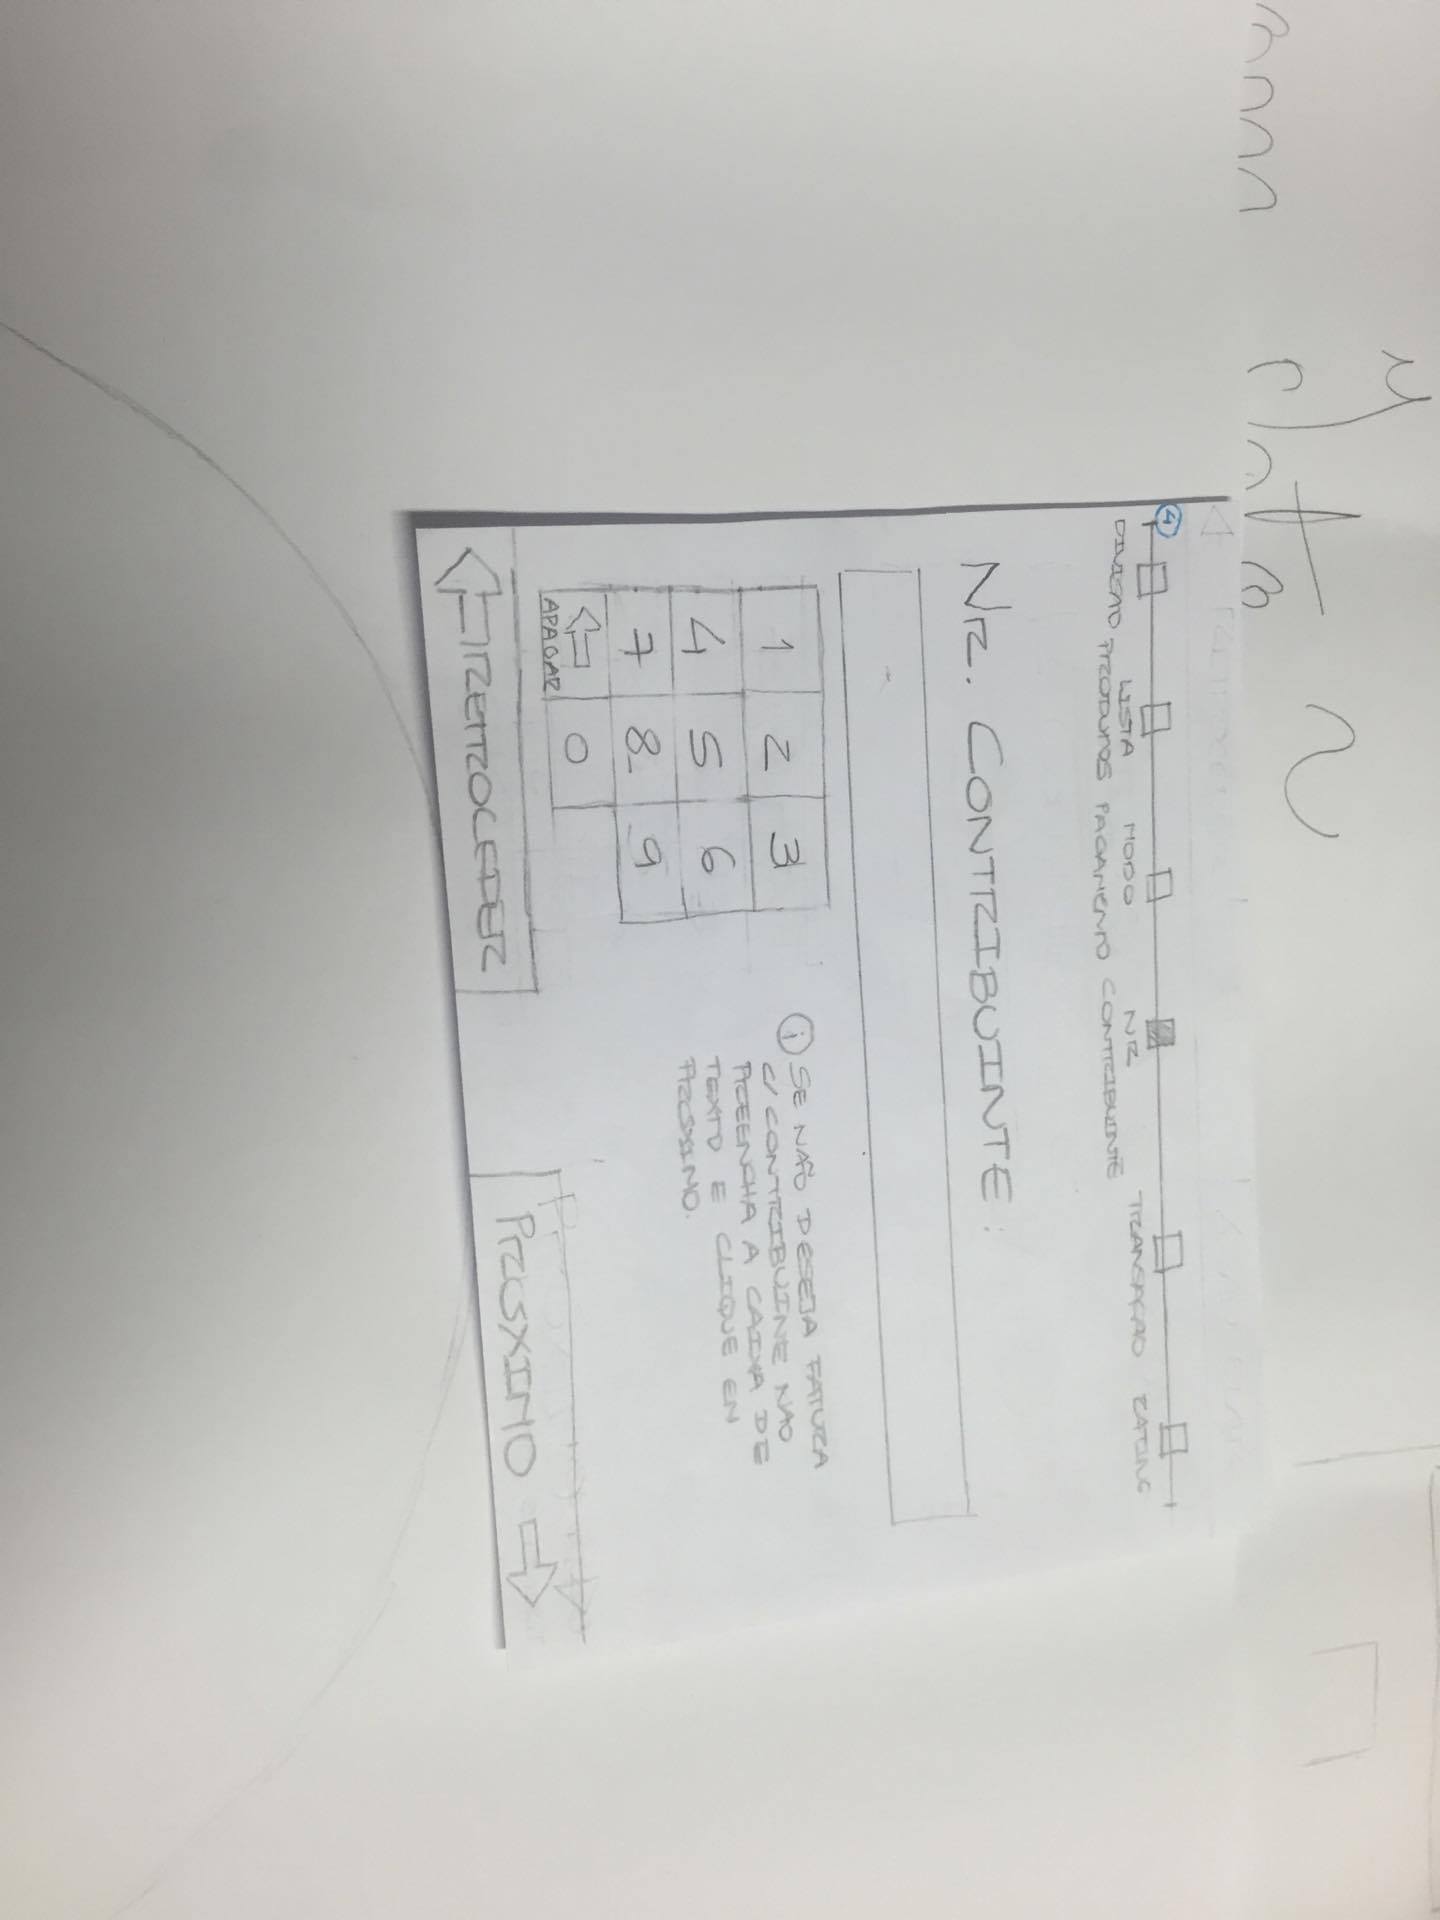 4
LISTA MODO NR
DIVISÃO PRODUTOS PAGAMENTO CONTRIBUINTE TRANSAÇÃO RATING
NR. CONTRIBUINTE:
1 2 3
4 5 6
7 8 9
0
APAGAR
i SE NÃO DESEJA FATURA
C/ CONTRIBUINE NÃO
PREENCHA A CAIXA DE
TEXTO E CLIQUE EM
PRÓXIMO.
RETROCEDER
PRÓXIMO